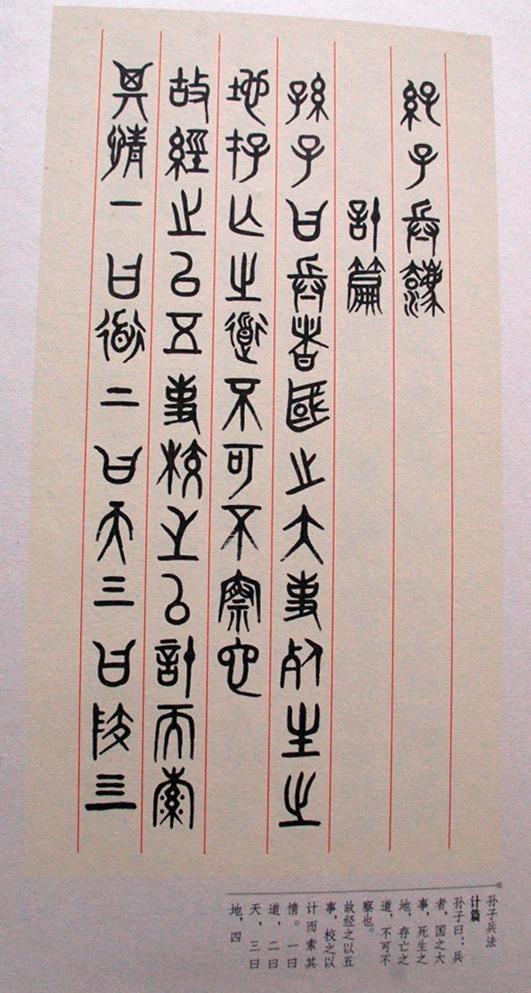 孫子兵灋
計篇
孫子曰兵者國之大事死生之
地存亡之道不可不察也
故經之以五事校之以計而索
其情一曰道二曰天三曰地四
孙子兵法
计篇
孙子曰：兵
者，国之大
事，死生之
地，存亡之
道，不可不
察也。
故经之以五
事，校之以
计而索其
情。一曰
道，二曰
天，三曰
地，四